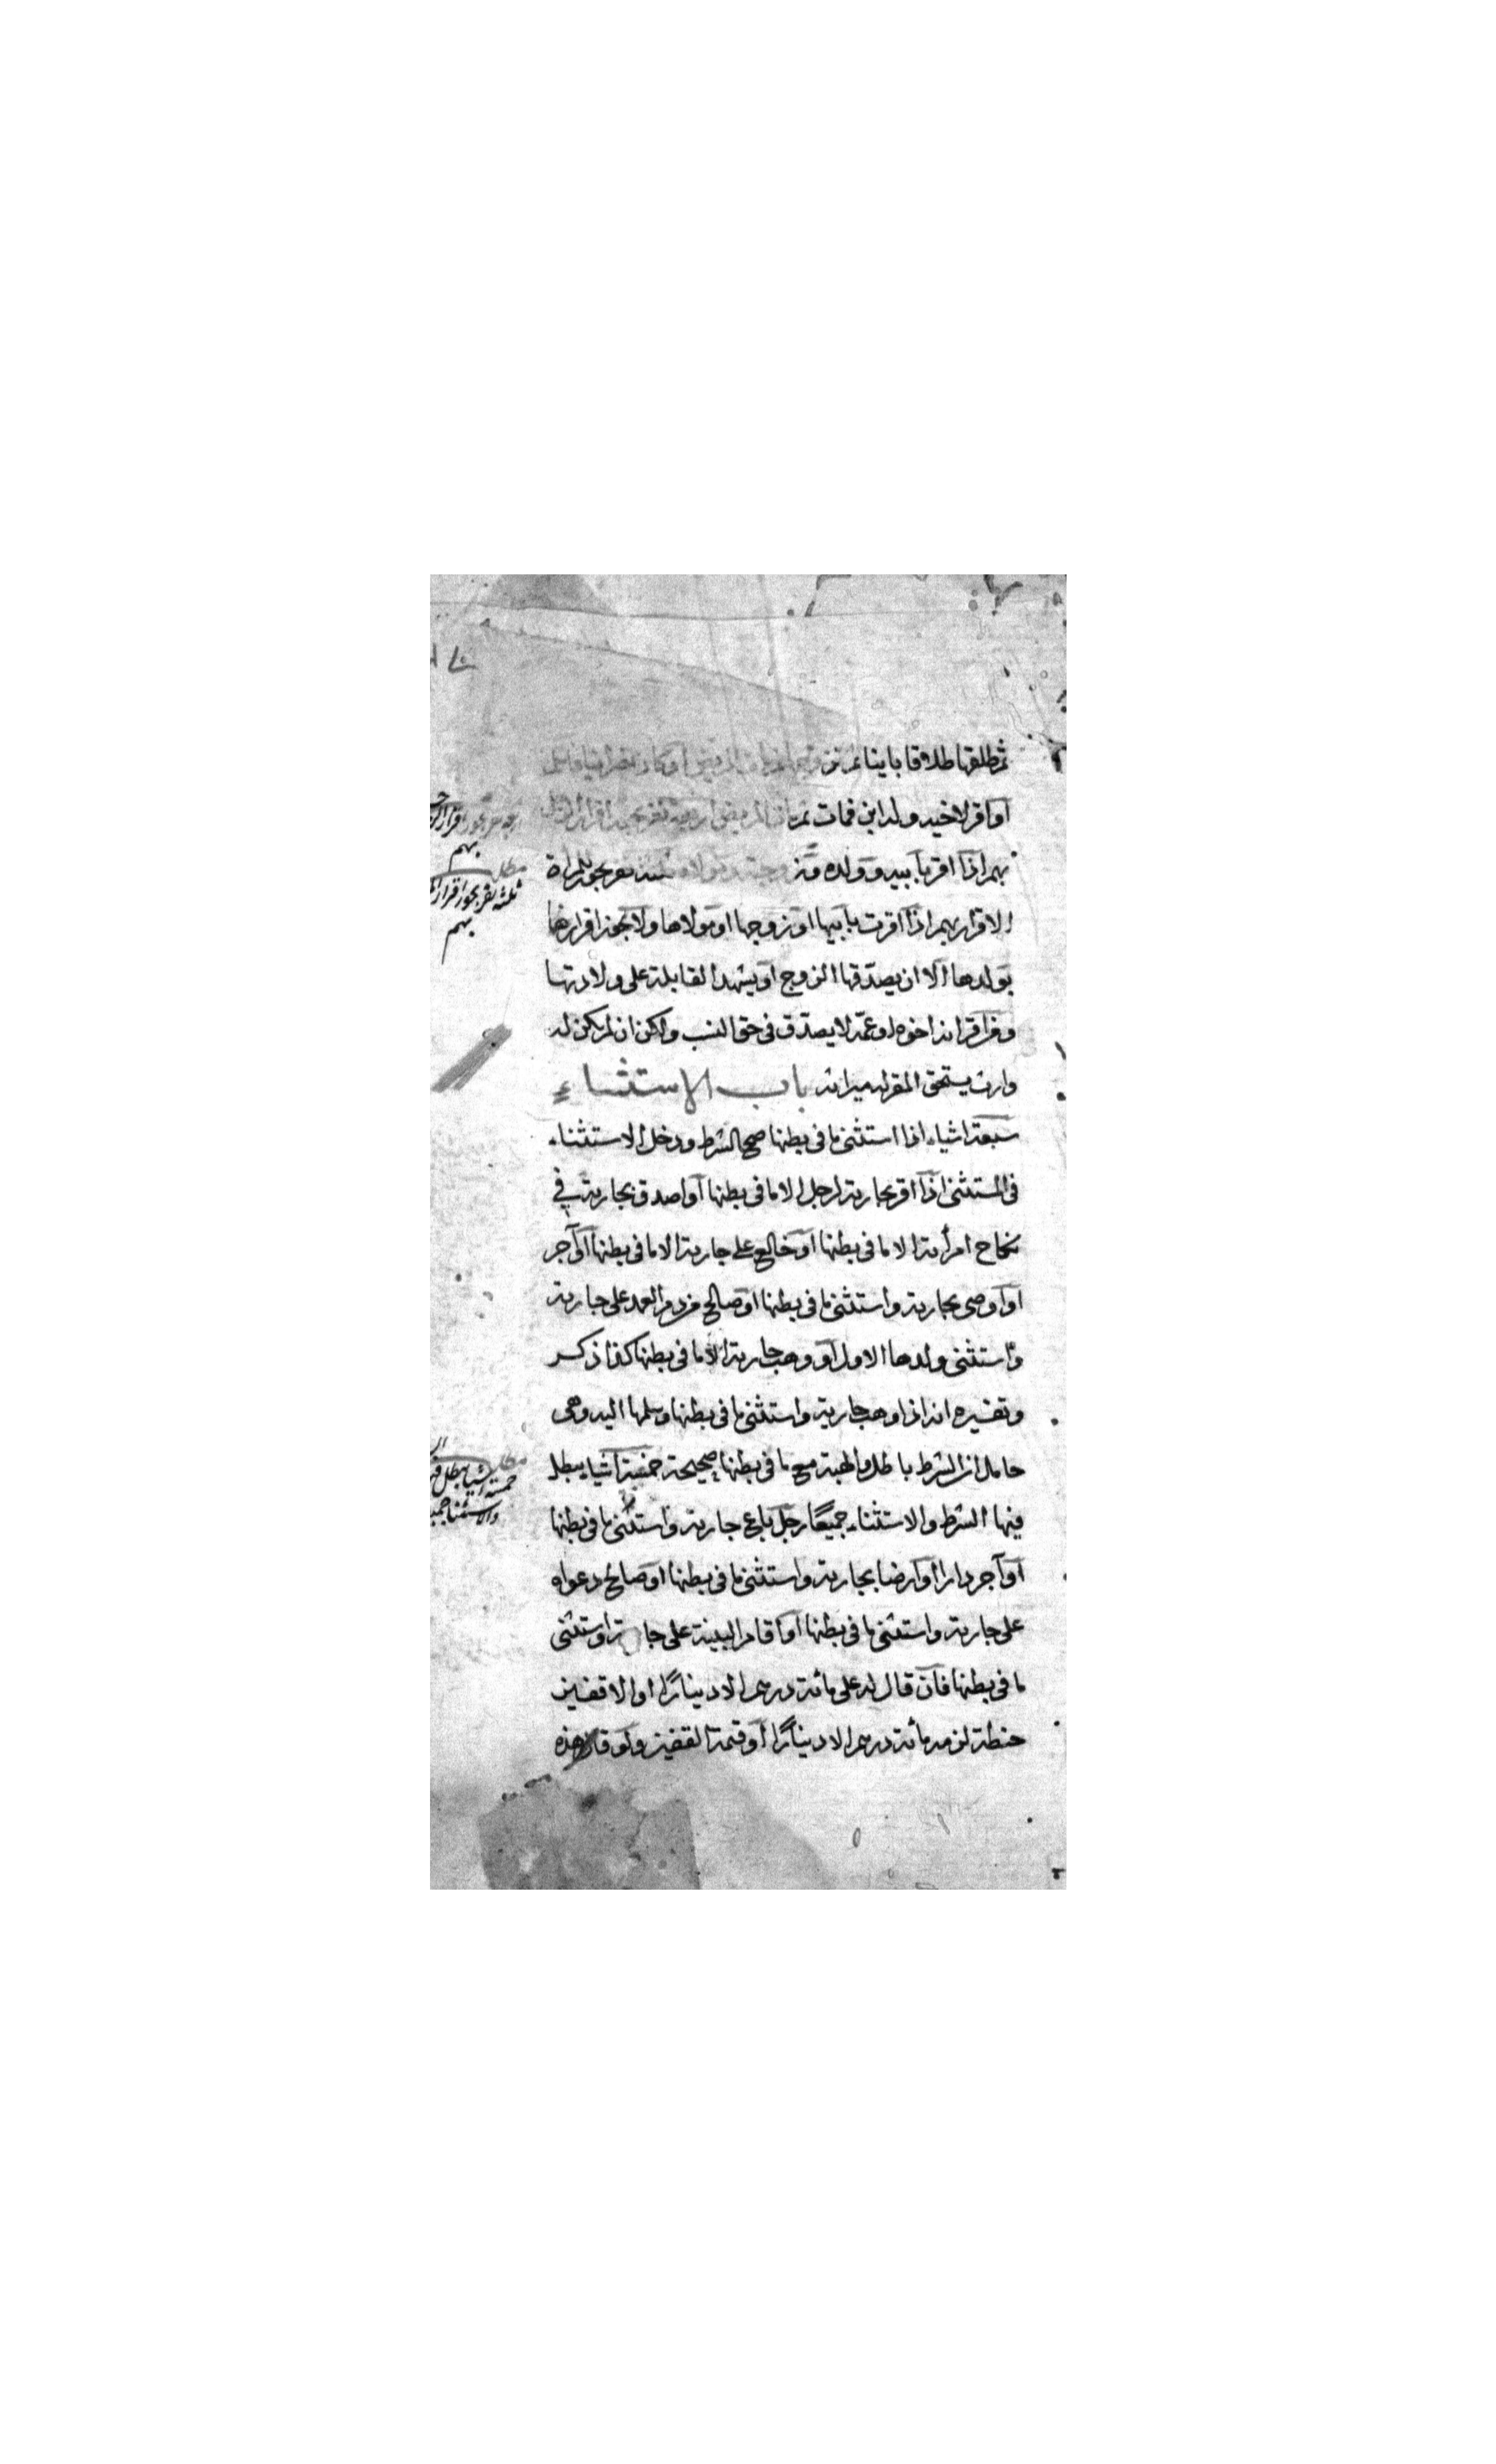 ثم طلقها طلاقا باينا ثم تزوجها ثم مات المريض او كان نصرانيا فاسلم
او اقر لاخيه وله ابن فمات ثم مات المريض اربعة نفر يجوز اقرار الرجل
بهم اذا اقر بابيه وولده وزوجته ومولاه ثلثة نفر يجوز للمراة
الاقرار بهم اذا اقرت بابيها او زوجها او مولاها ولا يجوز اقرارها
بولدها الا ان يصدقها الزوج او يشهد القابلة على ولادتها
ومن اقر انه اخوه او عمه لا يصدق في حق النسب ولكن ان لم يكن له
وارث يستحق المقر له ميراثه باب الاستثناء
سبعة اشياء اذا استثنى ما في بطنها صح الشرط ودخل الاستثناء
في المستثنى اذا اقر بجارية لرجل الا ما في بطنها او اصدق بجارية في
نكاح امرأته الا ما في بطنها او خالع على جارية الا ما في بطنها او آجر
او اوصى بجارية واستثنى ما في بطنها او صالح من دم العمد على جارية
واستثنى ولدها الاول او وهب جارية الا ما في بطنها كذا ذكر
وتفسيره انه اذا وهب جارية واستثنى ما في بطنها وسلمها اليه وهي
حامل ان الشرط باطل والهبة مع ما في بطنها صحيحة خمسة اشياء يبطل
فيها الشرط والاستثناء جميعا رجل باع جارية واستثنى ما في بطنها
او آجر دارا او ارضا بجارية واستثنى ما في بطنها او صالح دعواه
على جارية واستثنى ما في بطنها او اقام البينة على جارية واستثنى
ما في بطنها فان قال له على مائة درهم الا دينارا او الا قفيز
حنطة لزمه مائة درهم الا دينارا او قيمة القفيز ولو قال هذه
اربعة نفر يجوز اقرار
بهم
مطلب
ثلثة نفر يجوز اقرار
بهم
مطلب
خمسة اشيا يبطل
والاستثنا جميعا